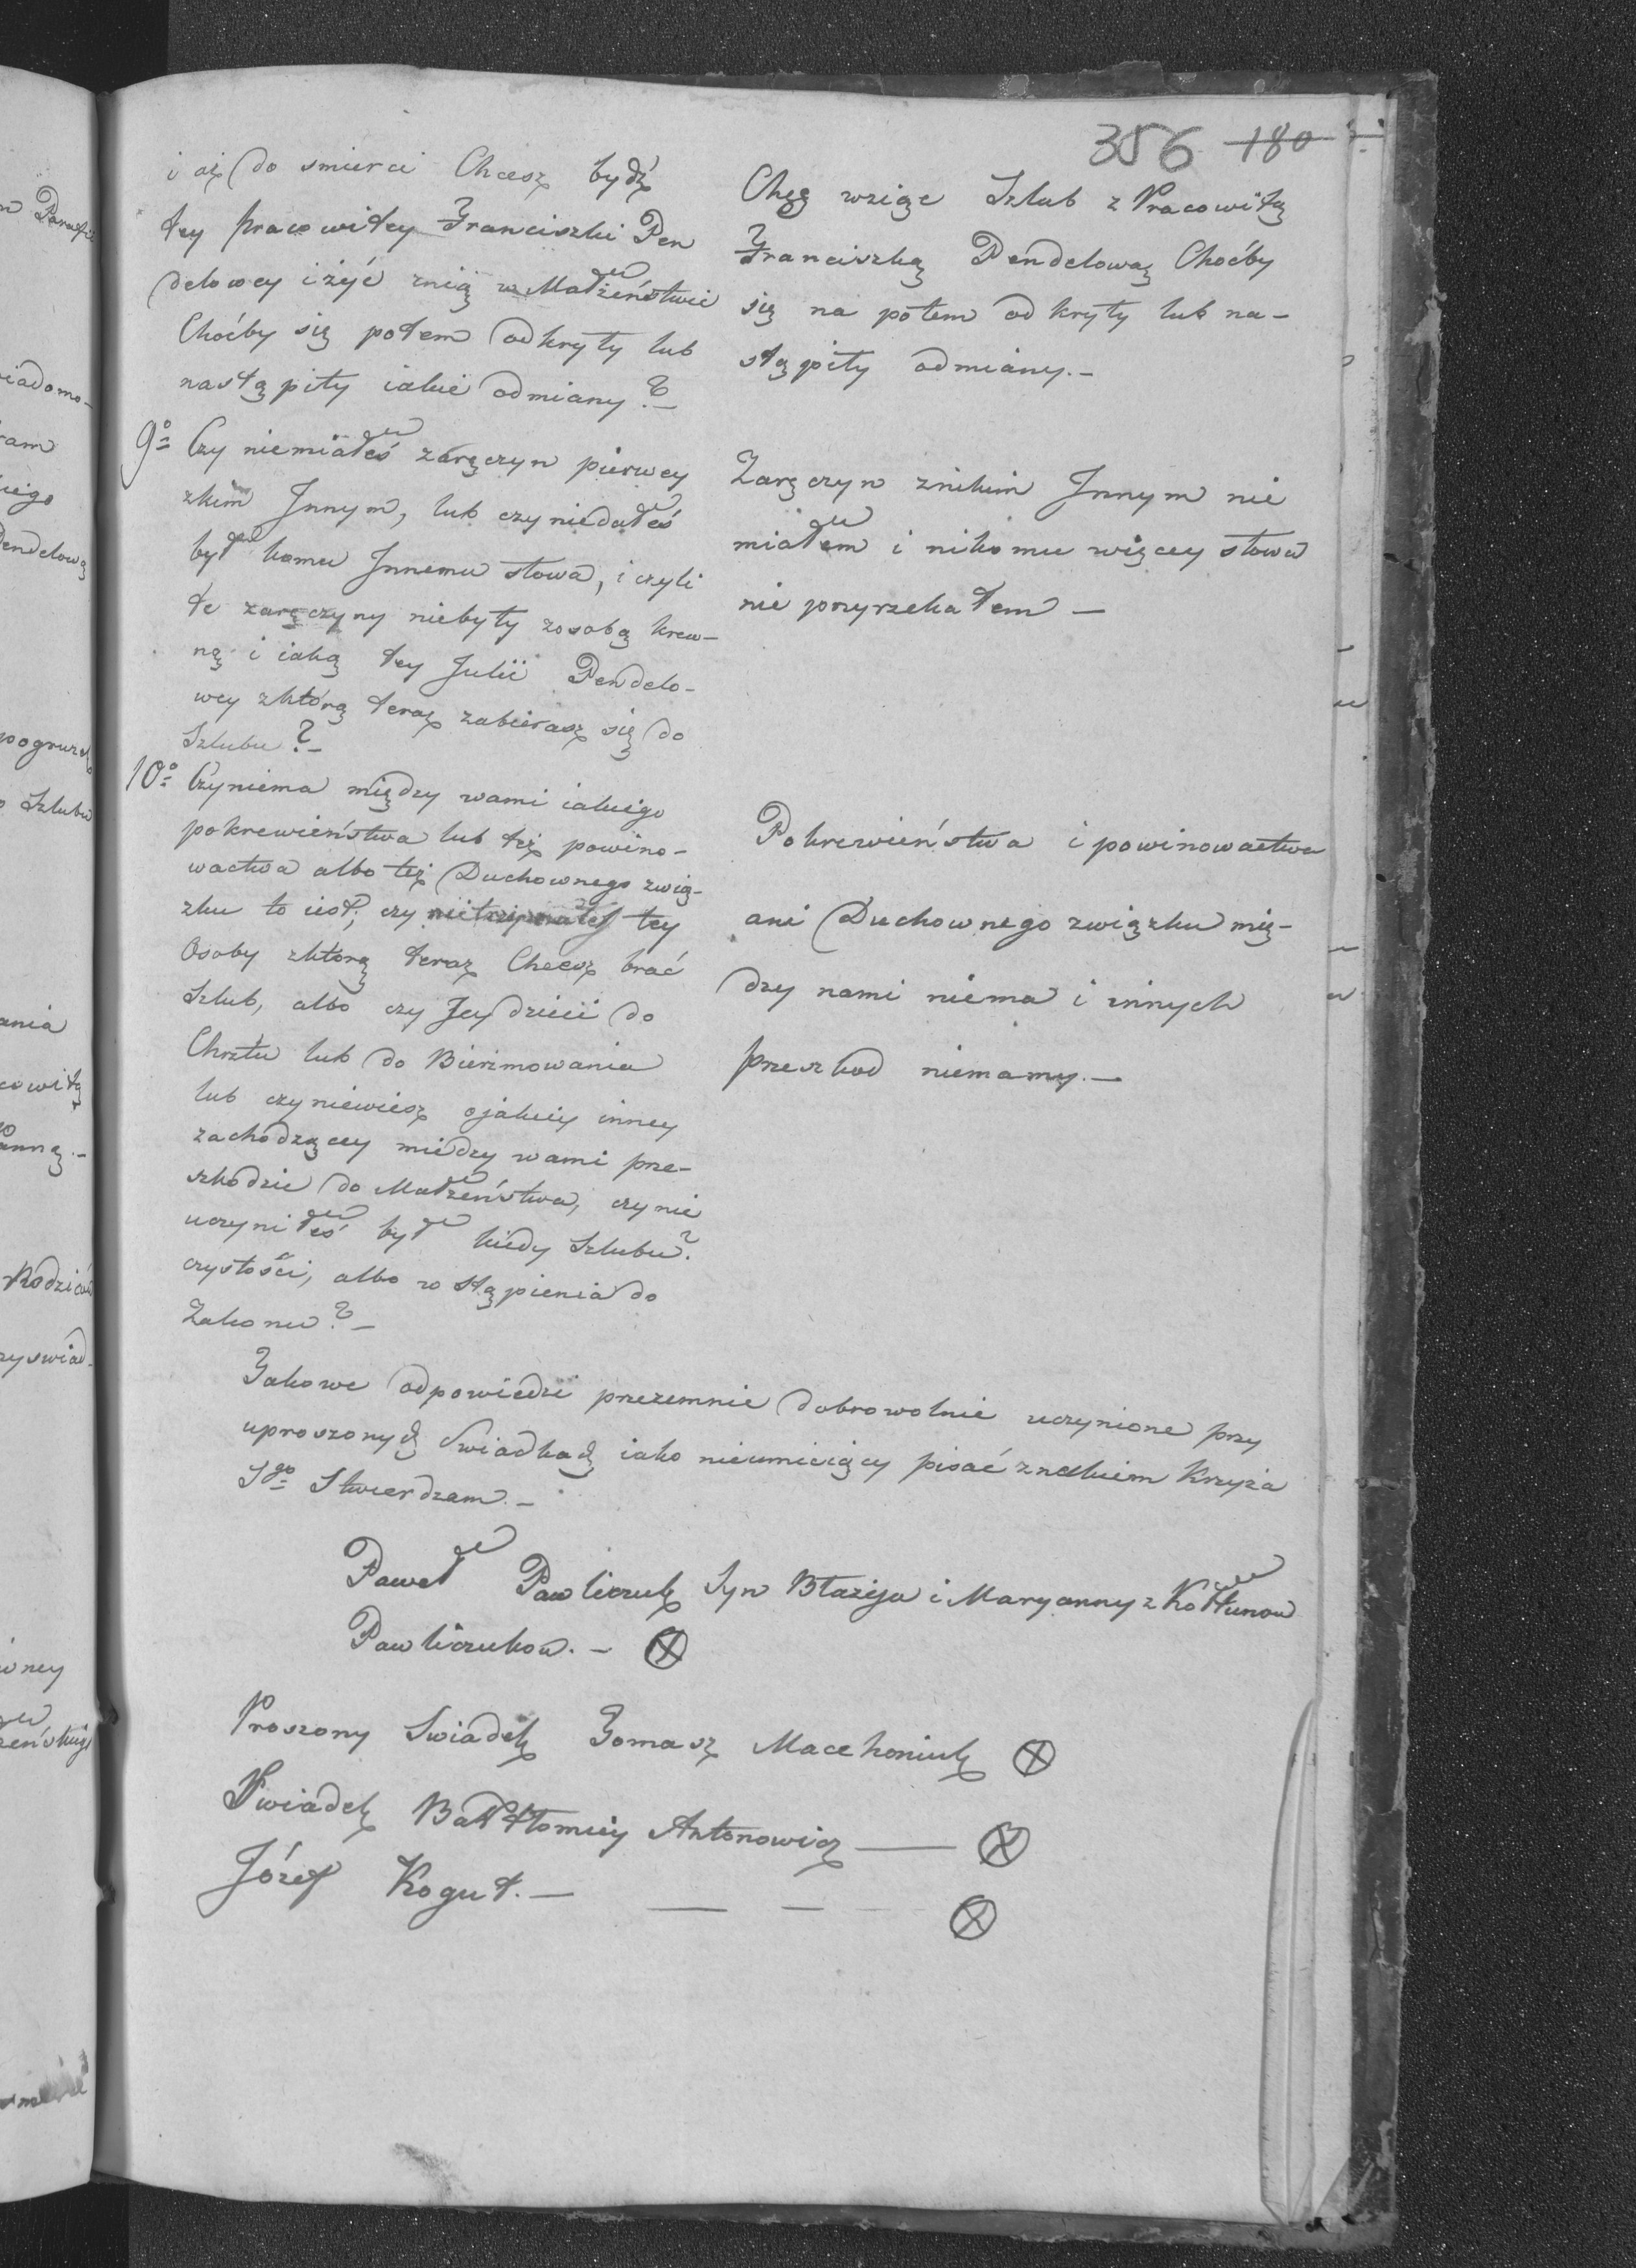 356 180
i aż do smierci Chcesz bydź
tey pracowitey Franciszki Pen
delowey i żyć znią w Małżeństwie
Choćby się potem odkryły lub
nastąpiły iakie odmiany?—
9o Czy niemiałeś zaręczyn pierwey
zkim Innym, lub czy niedałeś
był komu Innemu słowa, i czyli
te zaręczyny niebyły zosobą krew-
ną i iaką tey Julii Pendelo-
wey zktórą teraz zabierasz się do
Szlubu?—
10o Czyniema między wami iakiego
pokrewieństwa lub też powino-
wactwa albo też Duchownego zwią-
zku to iest; czy nietrzymałeś tey
Osoby zktorą teraz Chcesz brać
Szlub, albo czy Jey dzieci do
Chrztu lub do Bierzmowania
lub czy niewiesz ojakiey inney
zachodzącey miedzy wami prze-
szkodzie do Małżeństwa, czy nie
uczyniłeś był kiedy Szlubu?
czystości, albo wstąpienia do
Zakonu?—
Chęę wziąc Szlub z Pracowitą
Franciszką Pendelową Choćby
się na potem odkryły lub na-
stąpiły odmiany.—
Zaręczyn znikim Innym nie
miałem i nikomu więcey słowa
nie przyrzekałem—
Pokrewieństwa i powinowactwa
ani Duchownego związku mię-
dzy nami niema i innych
przeszkod niemamy.—
Jakowe odpowiedzi przezemnie dobrowolnie uczynione przy
uproszonych Swiadkach iako nieumieiący pisać znakiem Krzyża
Sgo Stwierdzam.—
Paweł Pawliczuk Syn Błażeja i Maryanny z Kołtunow
Pawliczukow.— X
Proszony Swiadek Tomasz Macehoniuk X
Swiadek Bartłomiey Antonowicz — X
Józef Kogut.— — — X